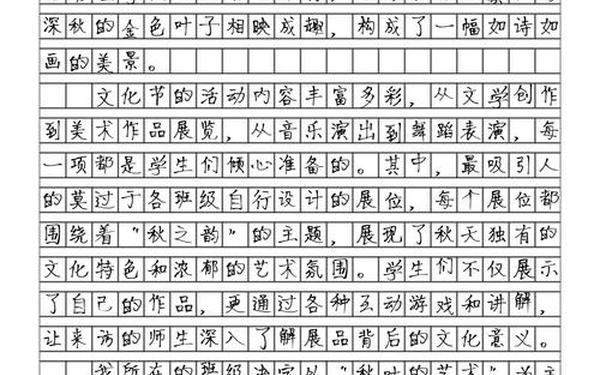 深秋的金色叶子相映成趣，构成了一幅如诗如
画的美景。
文化节的活动内容丰富多彩，从文学创作
到美术作品展览，从音乐演出到舞蹈表演，每
一项都是学生们倾心准备的。其中，最吸引人
的莫过于各班级自行设计的展位，每个展位都
围绕着"秋之韵"的主题，展现了秋天独有的
文化特色和浓郁的艺术氛围。学生们不仅展示
了自己的作品，更通过各种互动游戏和讲解，
让来访的师生深入了解展品背后的文化意义。
我所在的班级决定以"秋叶的艺术"为主